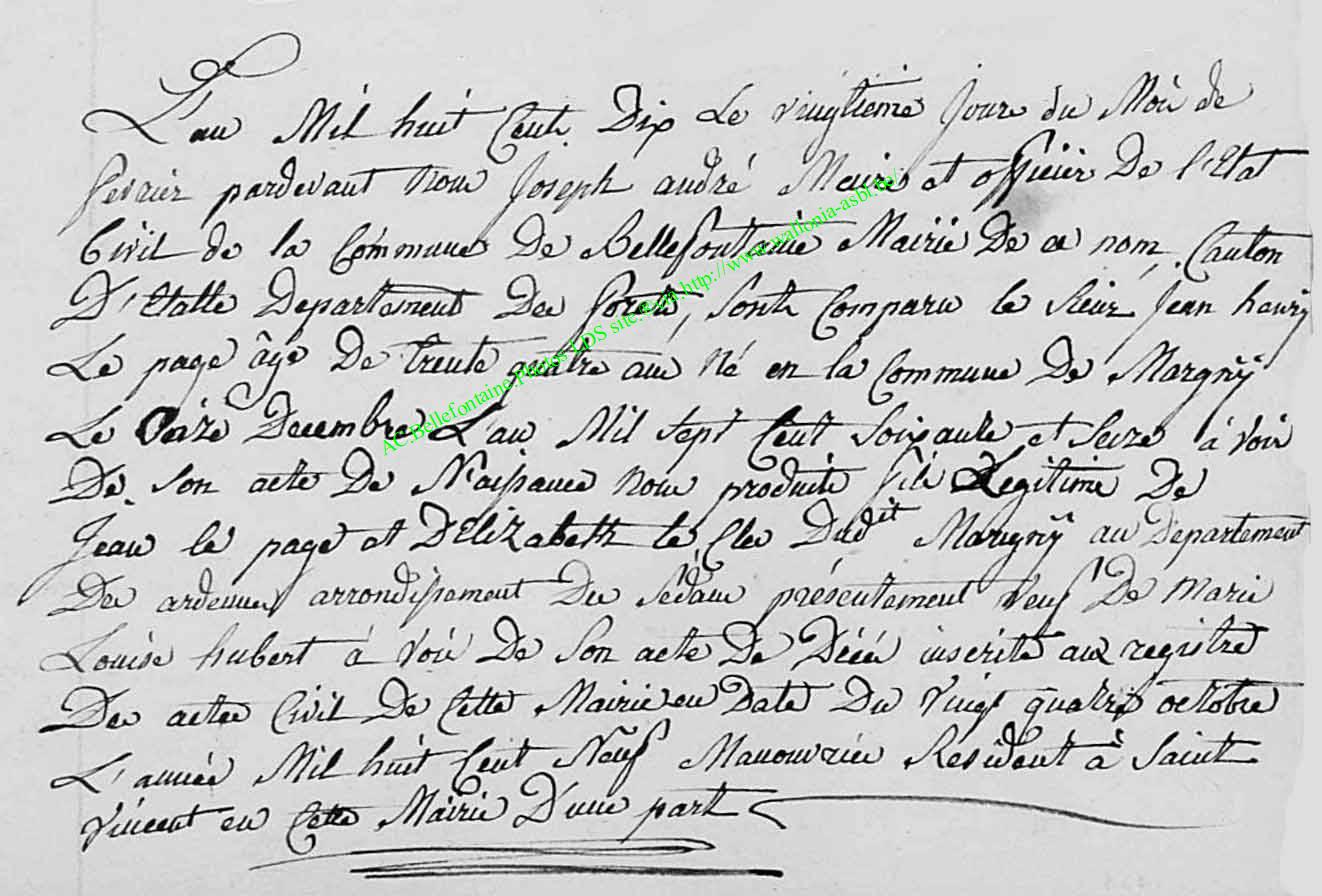 L'an Mil huit Cent Dix Le vingtieme Jour du Mois de
fevrier pardevant nous Joseph andré Maire et officier De l'Etat
Civil de la Commune De Bellefontaine Mairie De ce nom, Canton
D'Etalle Departement Des forets, sont Comparu le sieur Jean henry
Le page âgé De trente quatre ans Né en la Commune De Margny
Le Decembre L'an Mil sept Cent soixante et seize à voir
De son acte De Naissance nous produite fils Legitime De
Jean le page et D'Elizabeth le Cler Dudit Marigny au Departement
Des ardennes arrondissement De Sédan présentement veuf De Marie
Louise hubert à voir De son acte De Décés inscrite aux registre
Des actes Civil De Cette Mairie en Date Du Vingt quatre octobre
L'année Mil huit Cent Neuf Manouvrier Resident à Saint
Vincent en Cette Mairie D'une part
AC.Bellefontaine.Photos LDS site http://www.wallonia-asbl.be/